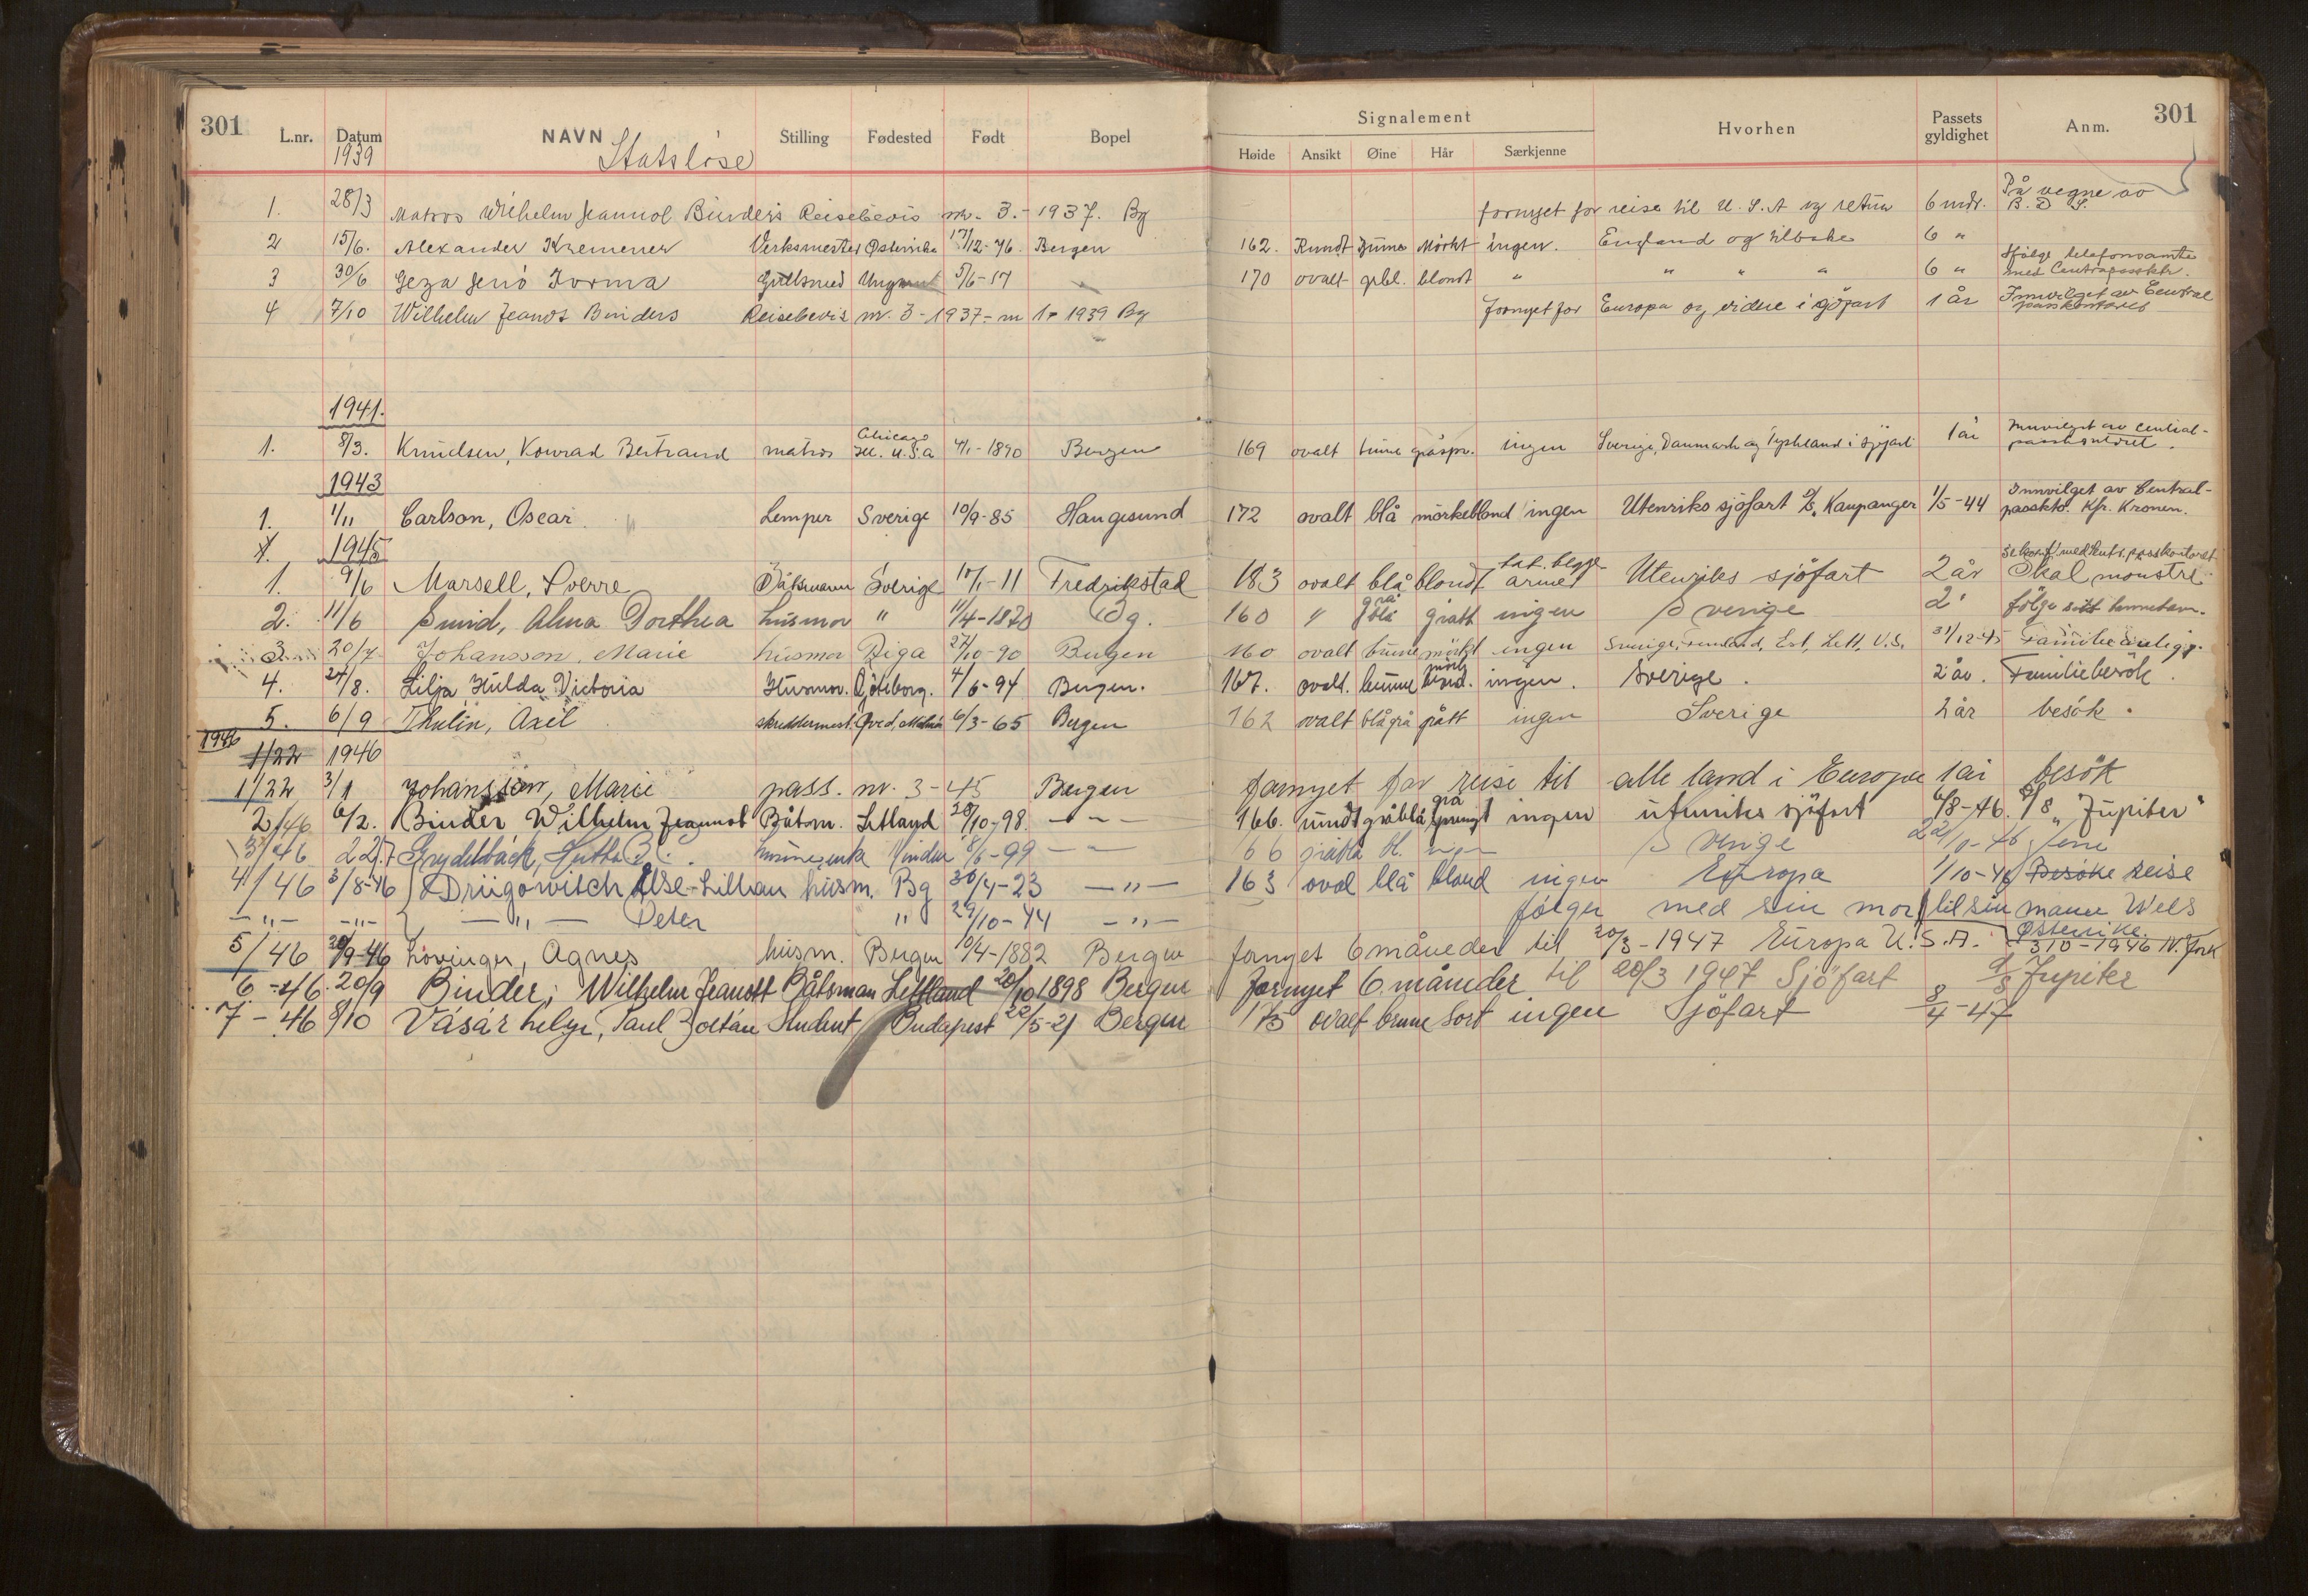 301 L.nr. Datum NAVN Stilling Fødested Født Bopel Signalement Hvorhen Passets gyldighet Anm. 301
1939 Statsløse Høide Ansikt Øine Hår Særkjenne
1. 28/3 Matros Wilhelm Jeannot Binders Reisebevis nr. 3.-1937. Bg fornyet for reise til U.S.A og retur 6 mdr. På vegne av B.D.S.
2 15/6. Alexander Kremener Verksmester Østerrike 17/12-76. Bergen 162. Rundt brune Mörkt ingen. England og tilbake 6 "
3 30/6 Geza Jenö Gullsmed 5/6-17 170 ovalt grbl. blondt " " " " 6 " ifølge telefonsamtale med Centralpassktr.
4 7/10 Wilhelm Jeanot Binders Reisebevis nr. 3-1937-nr 1-1939 Bg fornyet for Europa og videre i sjøfart 1 år Innvilget av Central passkontoret
1941.
1. 8/3. Knudsen, Konrad Bertrand matros Chicago Ill. U.S.A 4/1-1890 Bergen 169 ovalt brune gråspr. ingen Sverige, Danmark og Tyskland i sjøfart 1 år Innvilget av Central-passkontoret.
1943
1. 1/11 Carlson, Oscar Lemper Sverige 10/9-85 Haugesund 172 ovalt blå mörkeblond ingen Utenriks sjøfart D/S. Kaupanger 1/5-44 Innvilget av Central-passkto. Kfr. Kronen.
1. 1945
1. 9/6 Marsell, Sverre Båtsmann Sverige 10/1-11 Fredrikstad 183 ovalt blå blondt tat. begge armer Utenriks sjöfart 2 år Skal mönstre
2. 11/6 Smid, Alma Dorthea husmor " 11/4-1870 Bg. 160 " grå blå grått ingen Sverige 2 "
3 20/7 Johansson, Marie husmor Riga 27/10-90 Bergen 160 ovalt brune mörkt ingen Sverige, Finnland, Est, Lett, U.S. 31/12-45
4. 24/8. Lilja Hulda Victoria Husmor. Göteborg. 4/6-94 Bergen. 167. ovalt. brune mörk blond. ingen. Sverige. 2 år. Familiebesök.
5. 6/9 Thulin, Axel skreddermest. 6/3-65 Bergen 162 ovalt blågrå grått ingen Sverige 2 år besök.
1946 1/22 1946
1/22 3/1 Johansson, Marie pass. nr. 3-45 Bergen fornyet for reise til alle land i Europa 1 år besök
2/46 6/2. Binder Wilhelm Jeannot Båtsm. Letland 20/10-98. -"- 166. rundt gråblå grå sprengt ingen utenriks sjöfart 6/8-46. D/S "Jupiter"
3/46 22/7 -99 -"- Sverige
4/46 3/8-46 Driigowitch Else-Lillian husm. Bg 30/4-23 -"- 163 oval blå blond ingen Europa 1/10-46 Besöke reise
-"- -"- -"- Peter " 29/10-44 -"- følger med sin mor til sin mann Wels Østerrike
5/46 20/9-46 Lövinger, Agnes husm. Bergen 10/4-1882 Bergen fornyet 6 måneder til 20/3-1947 Europa U.S.A. 3/10-1946 N. York
6-46. 20/9 Binder, Wilhelm Jeanott Båtsman Lettland 20/10 1898 Bergen fornyet 6 måneder til 20/3 1947 Sjöfart D/S Jupiter
7-46 8/10 Vásárhelyi, Paul Zoltán Student Budapest 22/5-21 Bergen 175 ovalt brune Sort ingen Sjöfart 8/4-47